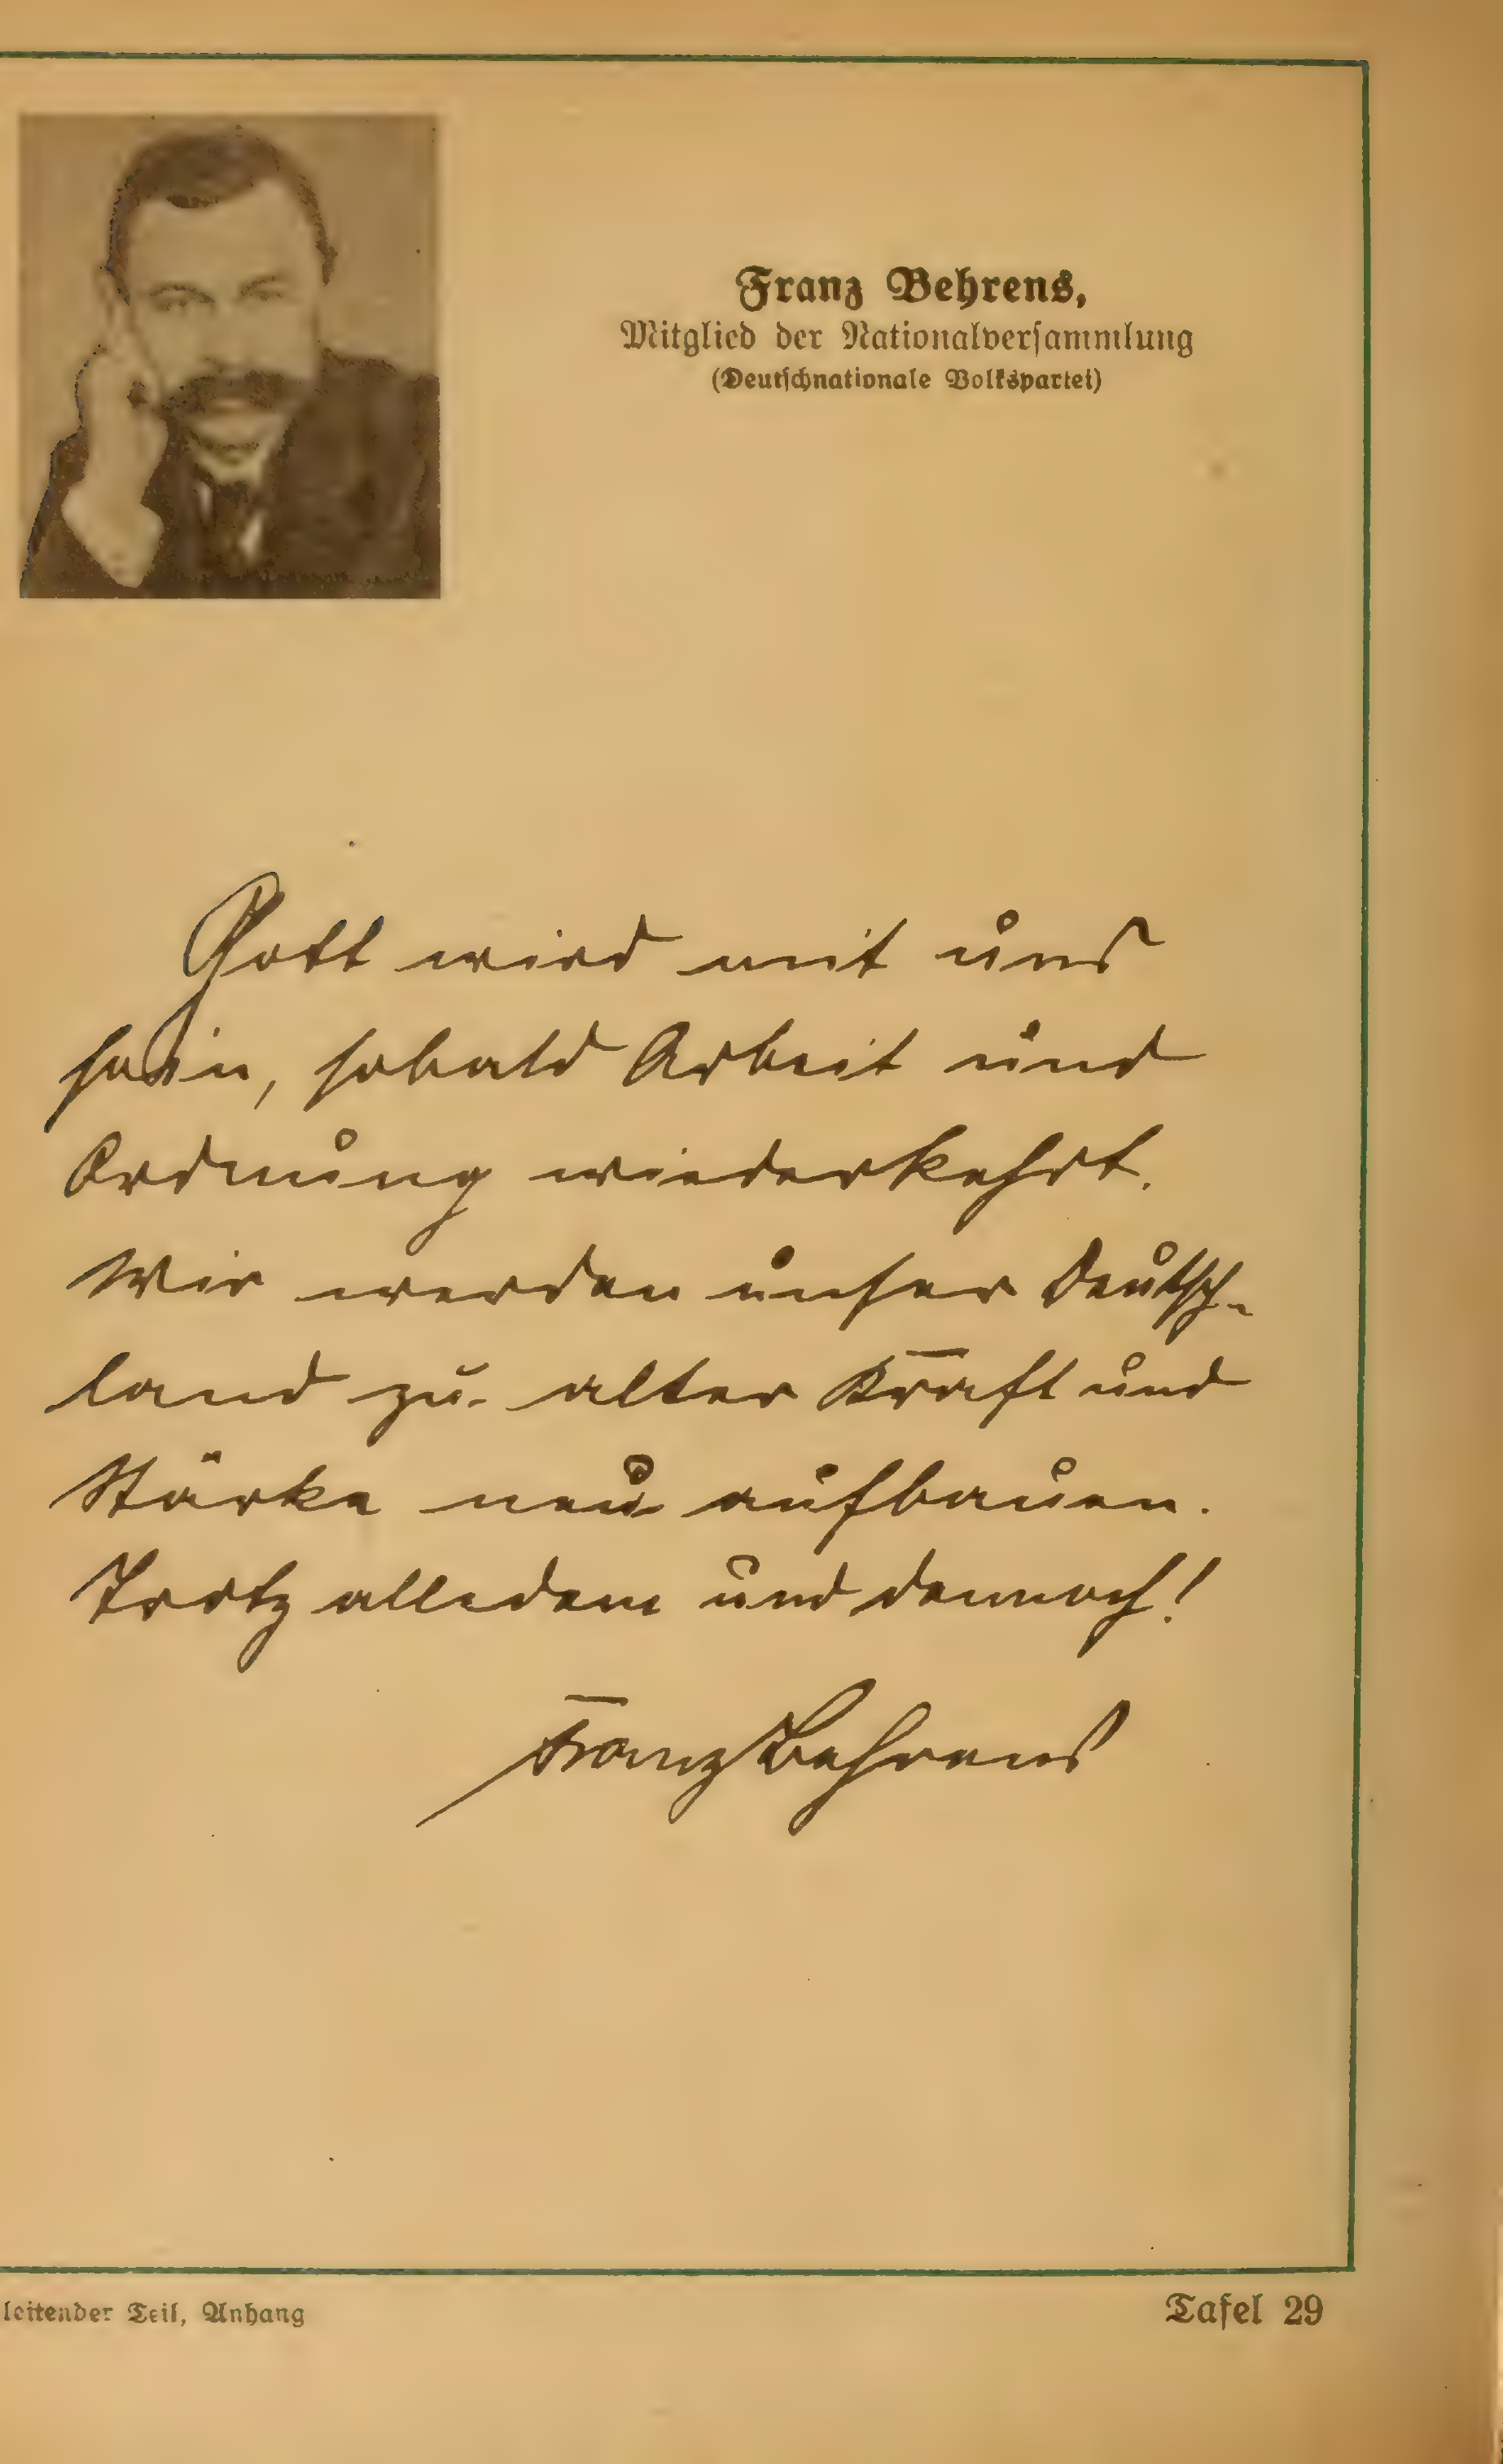 Franz Behrens,
Mitglied der Nationalversammlung
(Deutschnationale Volkspartei)
Gott wird mit uns
sein, sobald Arbeit und
Ordnung wiederkehrt.
Wir werden unser Deutsch-
land zu alter Kraft und
Stärke neu aufbauen.
Trotz alledem und dennoch!
Franz Behrens
leitender Teil, Anhang
Tafel 29